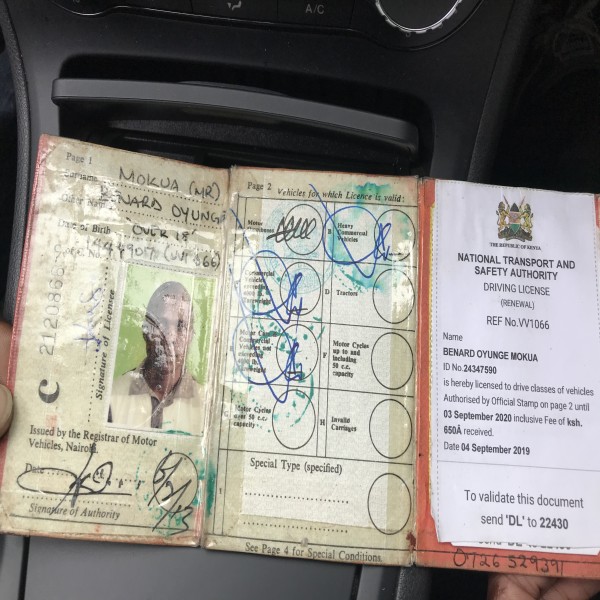 A/C
Page 1
Surname MOKUA (MR)
BENARD OYUNGE
Date of Birth "OVER 18"
C
Signature of Licence
Issued by the Registrar of Motor
Vehicles, Nairobi.
Date
Signature of Authority
Page 2 Vehicles for which Licence is valid:
Motor
B Heavy
Commercial
Vehicles
Commercial
D Tractors
Motor
Vehicles not
exceeding
F Motor Cycles
up to and
including
50 c.c.
capacity
Motor Cycles
over 50 c.c.
capacity
H Invalid
Carriages
Special Type (specified)
See Page 4 for Special Conditions.
THE REPUBLIC OF KENYA
NATIONAL TRANSPORT AND
SAFETY AUTHORITY
DRIVING LICENSE
(RENEWAL)
REF No.VV1066
Name
BENARD OYUNGE MOKUA
ID No.24347590
is hereby licensed to drive classes of vehicles
Authorised by Official Stamp on page 2 until
03 September 2020 inclusive Fee of ksh.
650Â received.
Date 04 September 2019
To validate this document
send 'DL' to 22430
0726 529391